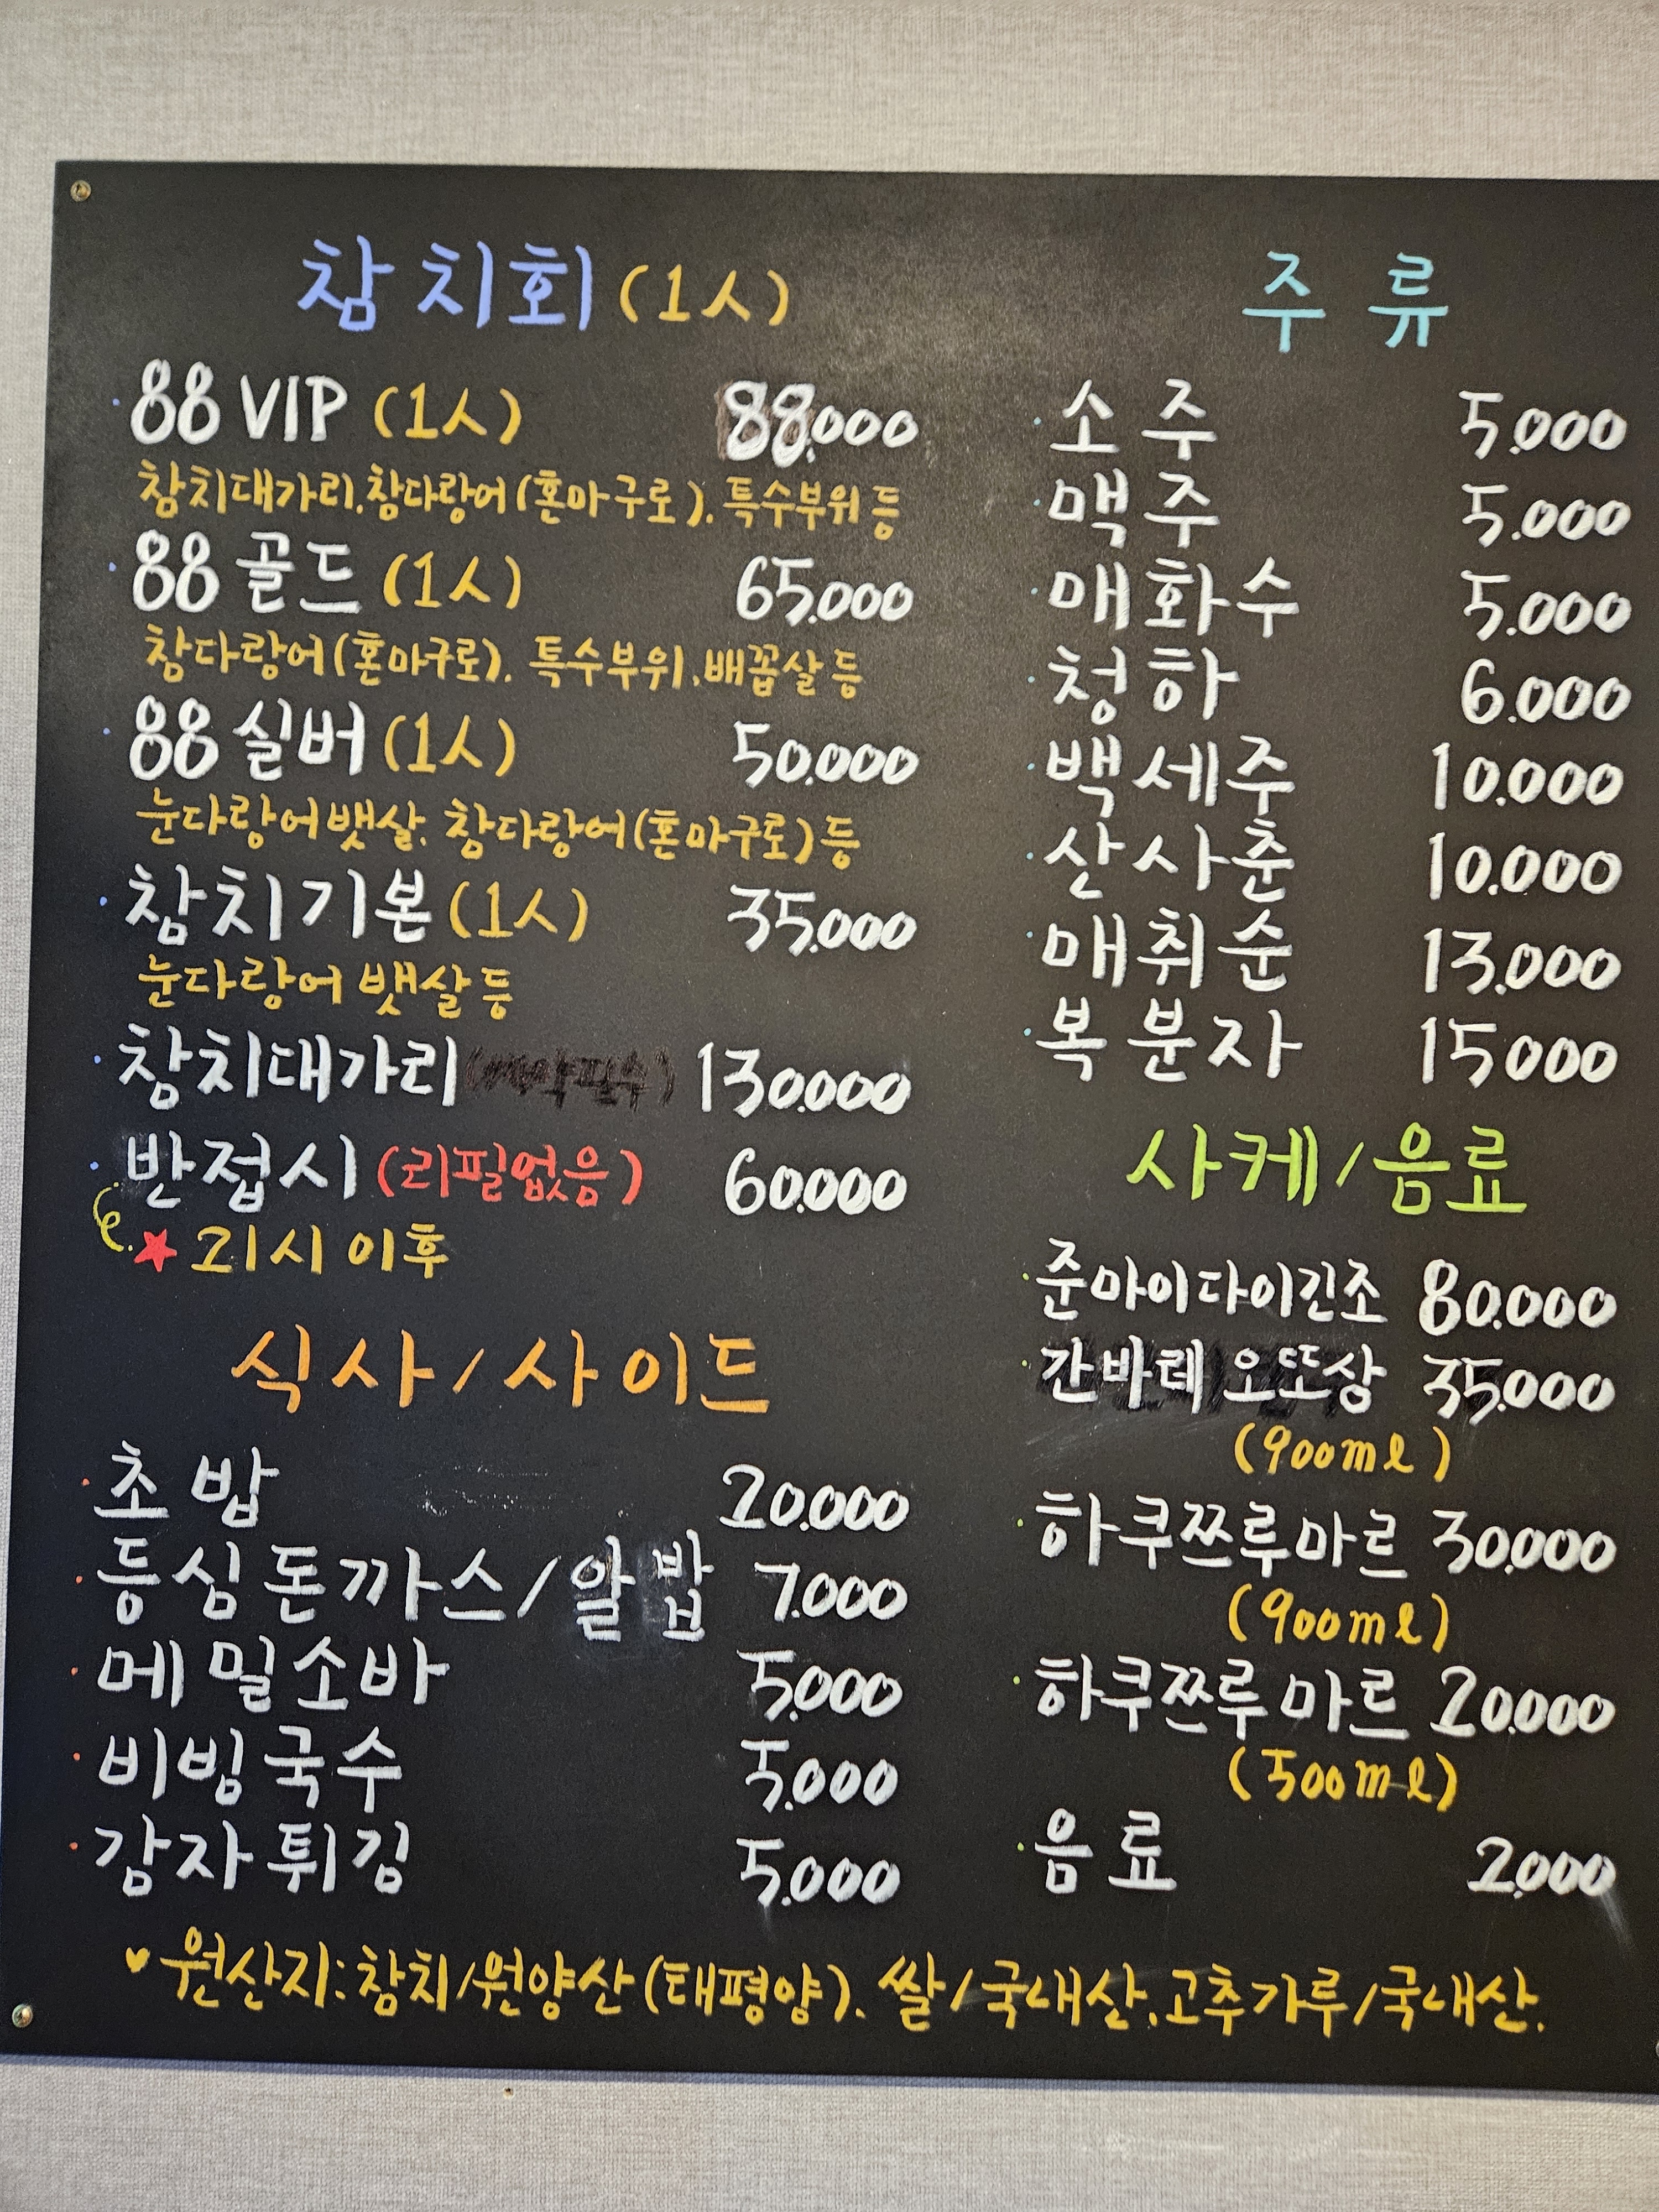 참치회 (1人)
88 VIP (1人) 88.000
참치대가리. 참다랑어(혼마구로). 특수부위 등
88 골드 (1人) 65.000
참다랑어(혼마구로). 특수부위. 배꼽살 등
88 실버 (1人) 50.000
눈다랑어 뱃살. 참다랑어(혼마구로) 등
참치기본 (1人) 35.000
눈다랑어 뱃살 등
참치대가리 130.000
반접시 (리필없음) 60.000
★ 21시 이후
식사/사이드
초밥 20.000
등심돈까스/알밥 7.000
메밀소바 5.000
비빙국수 5.000
감자튀김 5.000
주류
소주 5.000
맥주 5.000
매화수 5.000
청하 6.000
백세주 10.000
산사춘 10.000
매취순 13.000
복분자 15000
사케/음료
준마이다이긴조 80.000
간바레 오또상 35.000
(900ml)
하쿠쯔루마르 30.000
(900ml)
하쿠쯔루마르 20.000
(500ml)
음료 2.000
♥ 원산지: 참치/원양산(태평양). 쌀/국내산. 고추가루/국내산.